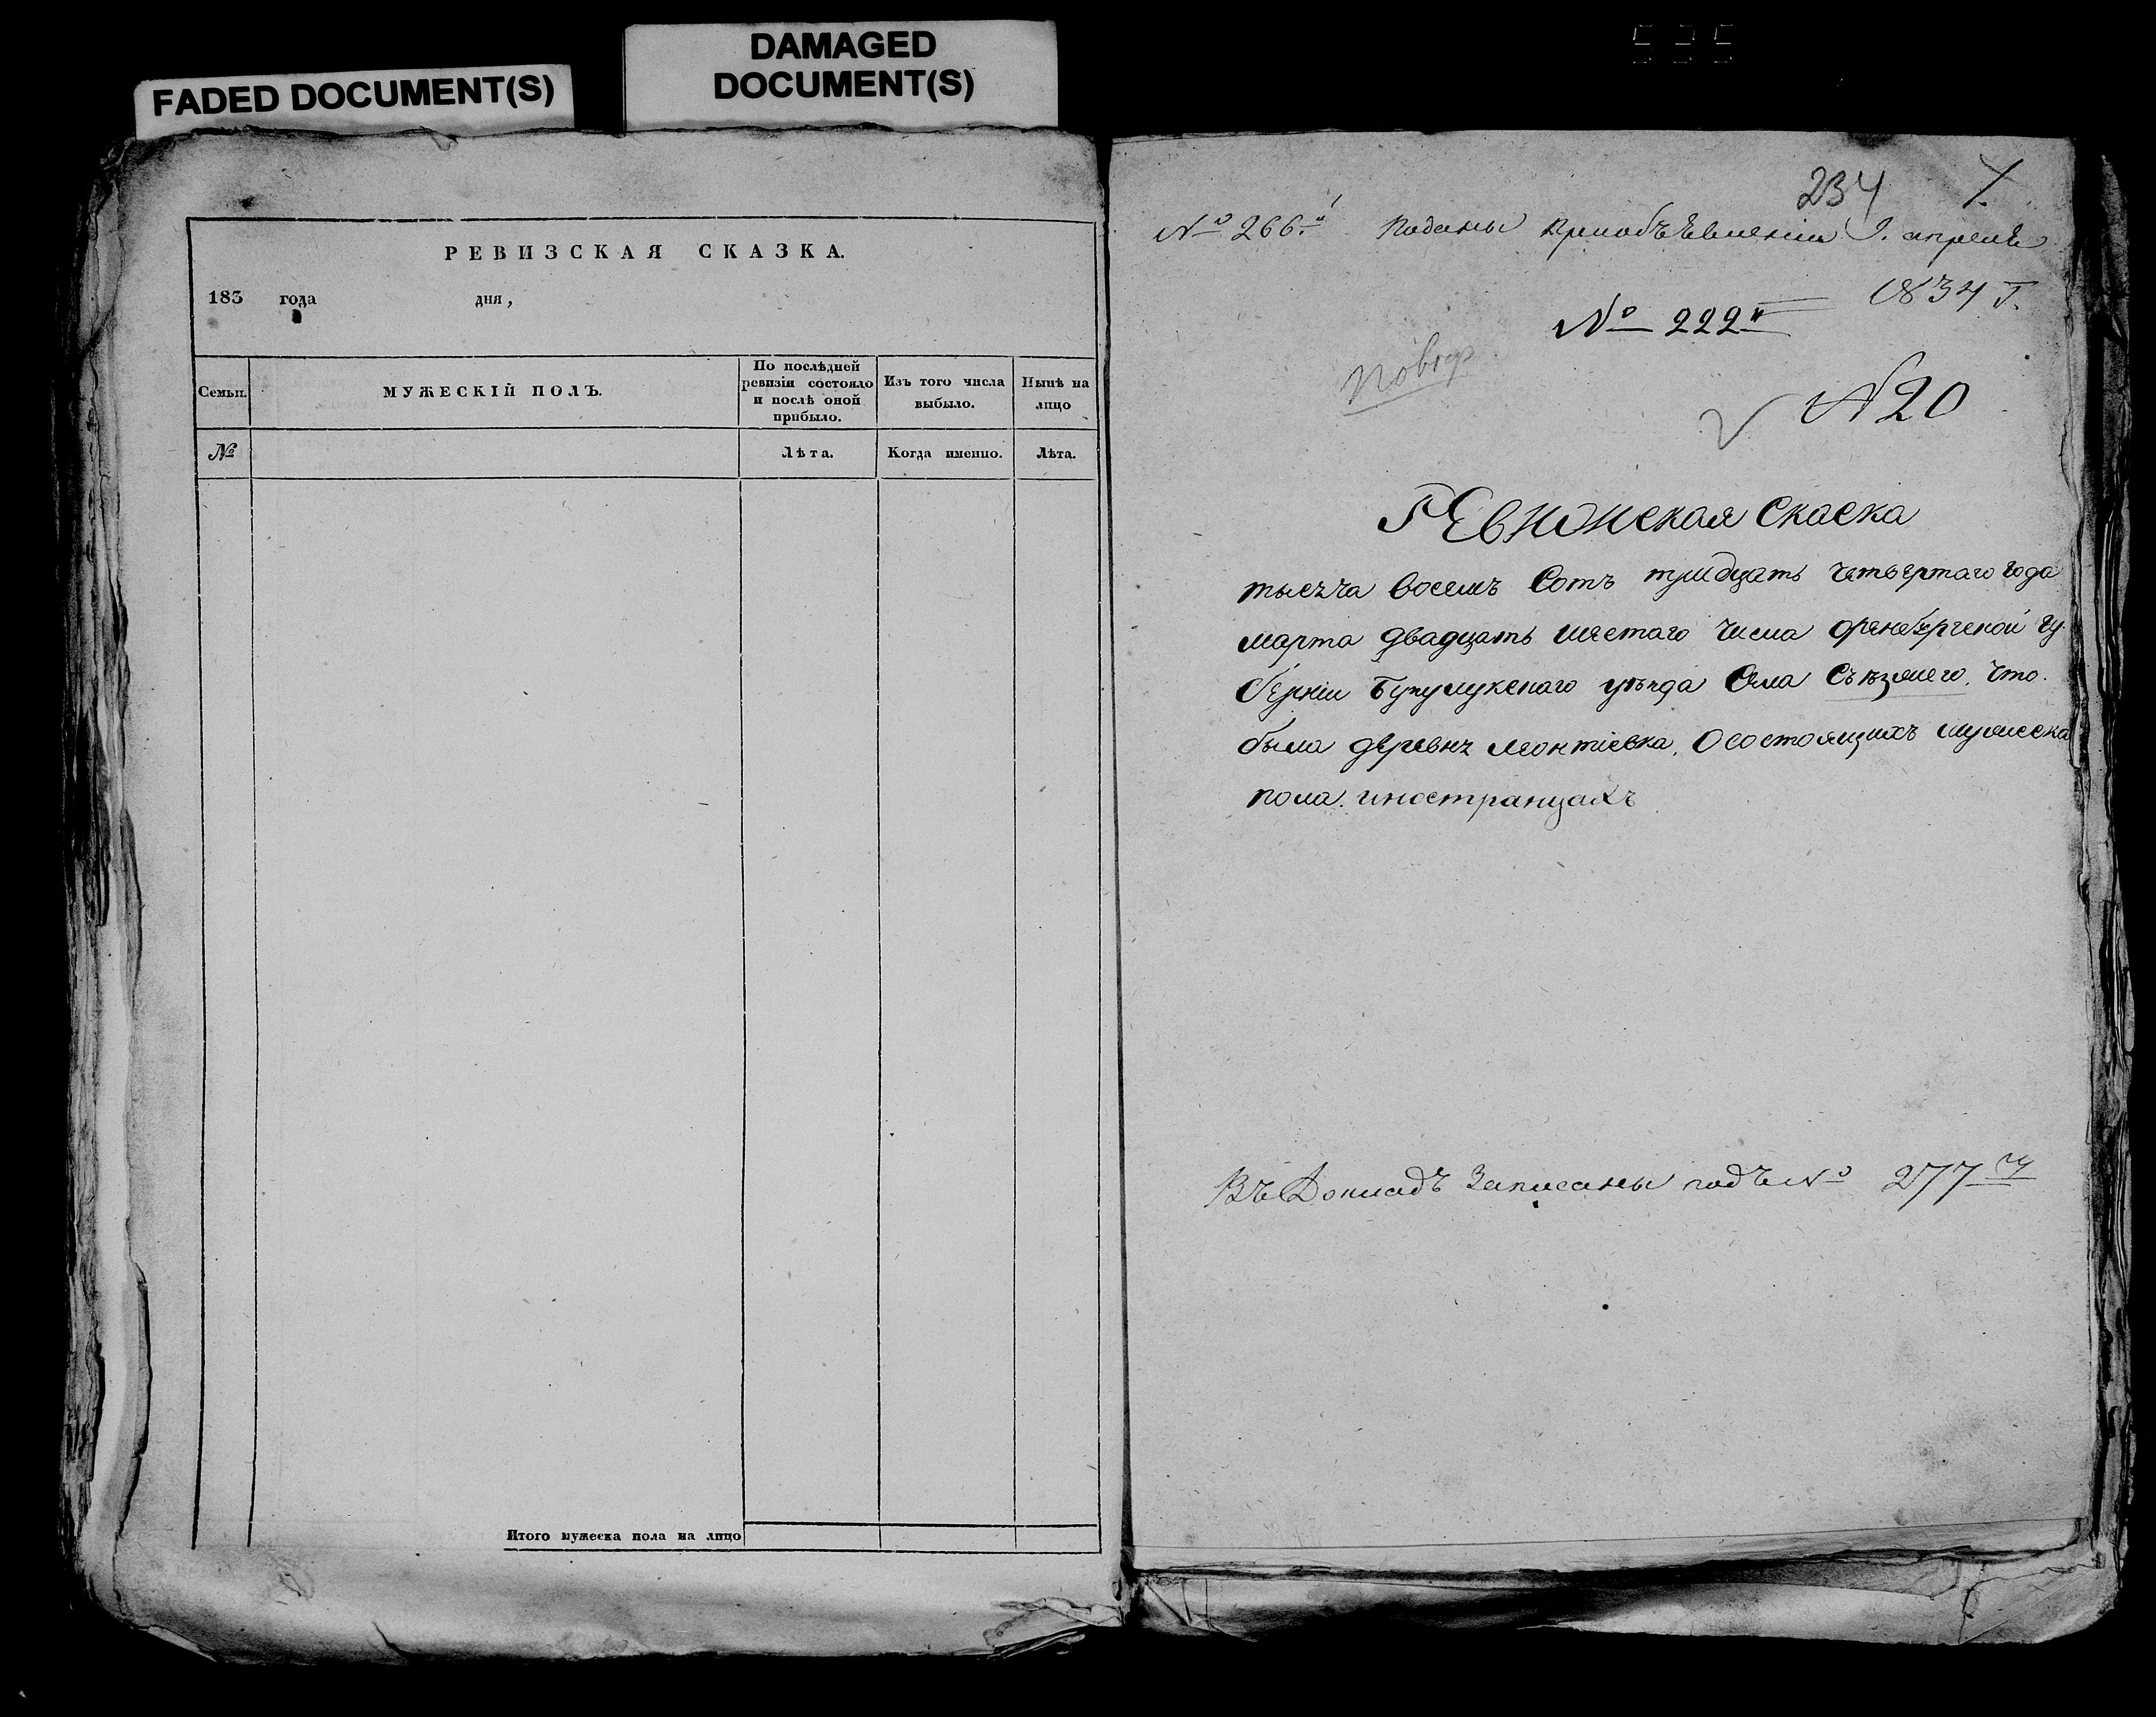 FADED DOCUMENT(S)
DAMAGED
DOCUMENT(S)
РЕВИЗСКАЯ СКАЗКА.
183 года дня,
Семьи.
МУЖЕСКІЙ ПОЛЪ.
По послѣдней
ревизіи состояло
и послѣ оной
прибыло.
Изъ того числа
выбыло.
Нынѣ на
лицо
№
Лѣта.
Когда именно.
Лѣта.
Итого мужеска пола на лицо
234
№ 266. Поданы приобъевленіи апреля
1834 г.
№ 222
повтор
№ 20
Ревизкая скаска
тысеча восемь сотъ тридцать четьвертаго года
марта двадцать шестаго числа оренбургской гу
берніи Бугулукскаго уѣзда села Съѣзжего. что
была деревня леонтіевка. О состоящихъ мужеска
пола. иностранцахъ
Въ Докладъ Записаны подъ № 277